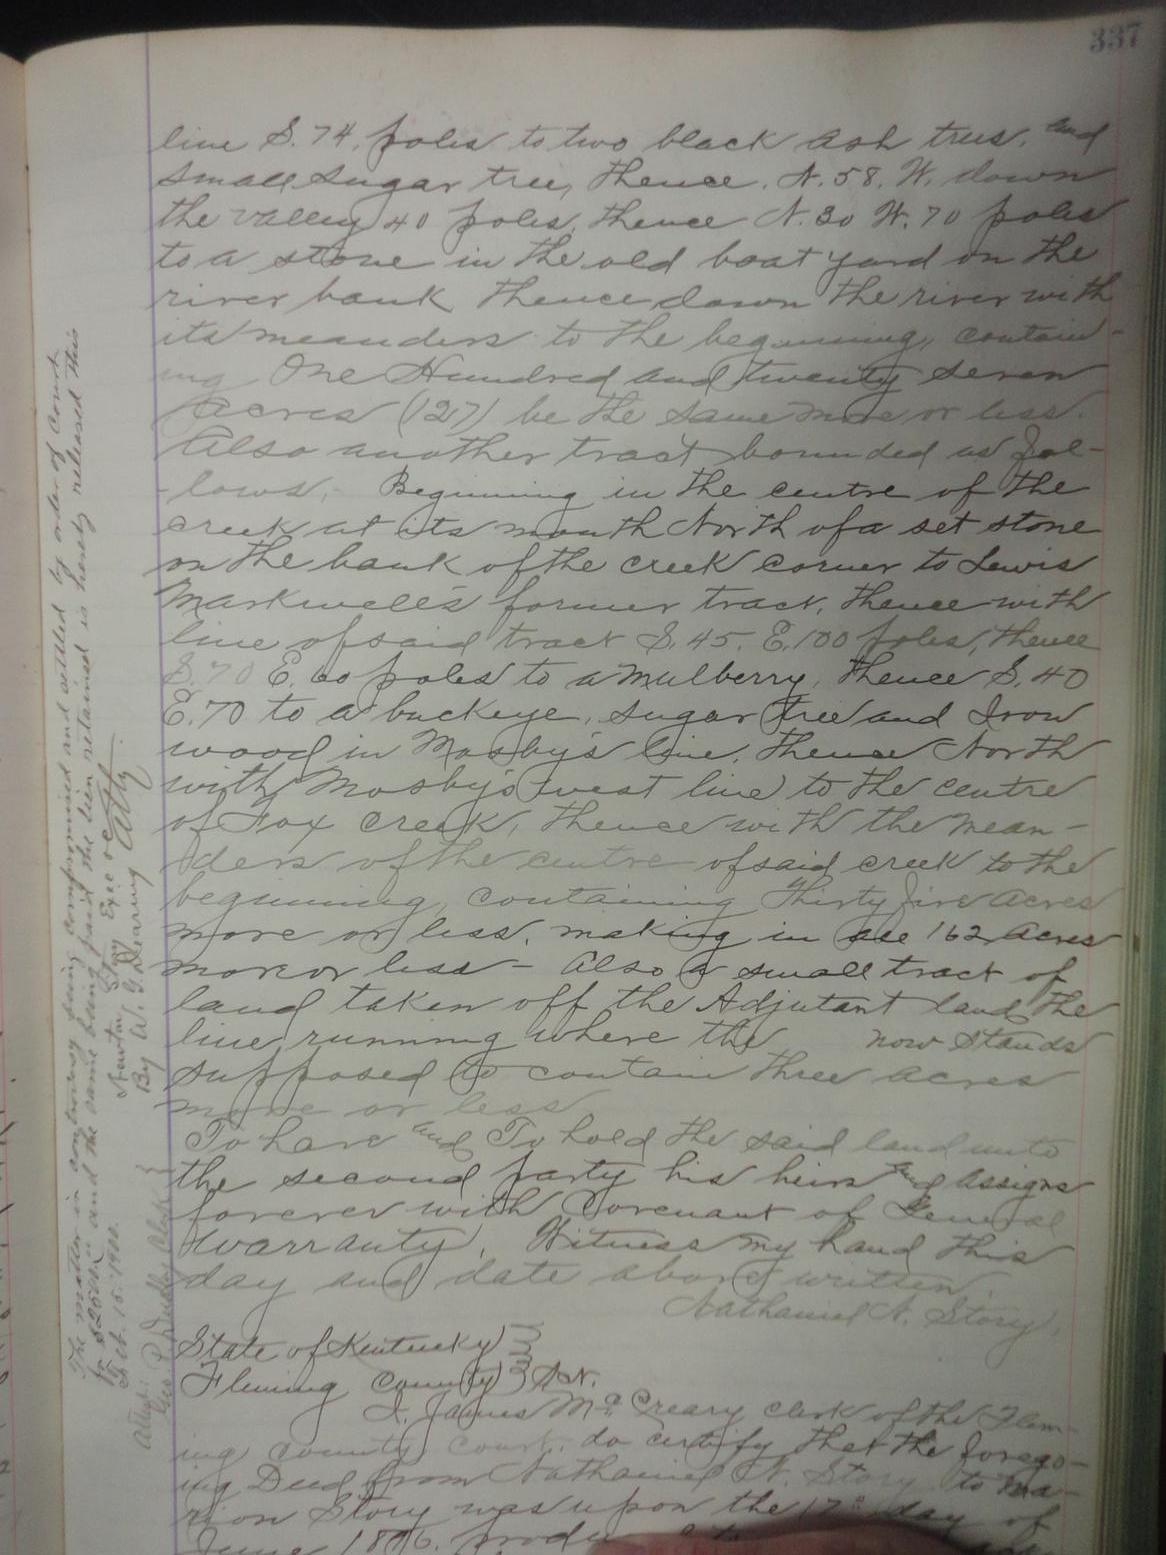 337
line S. 74. poles to two black ash trees. and
small sugar tree, thence. N. 58. W. down
the valley 40 poles, thence N. 30 W. 70 poles
to a stone in the old boat yard on the
river bank thence down the river with
its meanders to the beginning, contain-
ing One Hundred and twenty seven
acres (127) be the same more or less.
Also another tract bounded as fol-
lows. Beginning in the centre of the
creek at its mouth North of a set stone
on the bank of the creek corner to Lewis
Markwell's former track, thence with
line of said track S. 45. E. 100 poles, thence
S. 70 E. 60 poles to a mulberry, thence S. 40
E. 70 to a buckeye, sugar tree and Iron
wood in Mosby's line, thence North
with Mosby's west line to the centre
of Fox creek, thence with the mean-
ders of the centre of said creek to the
beginning, containing thirty five acres
more or less, making in all 162 acres
more or less - Also a small tract of
land taken off the Adjutant land the
line running where the now stands
supposed to contain three acres
more or less
To have and To hold the said land unto
the second party his heirs and assigns
forever with Covenant of General
Warranty. Witness my hand this
day and date above written
Nathaniel N. Story.
State of Kentucky
Fleming County } Sct.
I. James McCreary clerk of the Flem-
ing county court. do certify that the forego-
ing Deed from Nathaniel N. Story to Ma-
rion Story was upon the 17" day of
June 18
The matter in controversy being compromised and settled by order of Court
for and the same being paid the lien retained is hereby released this
Feb. 15. 1900. Newton Story Exec
By W. G. Dearing Atty.
Attest:
Geo. P. Dudley Clerk }